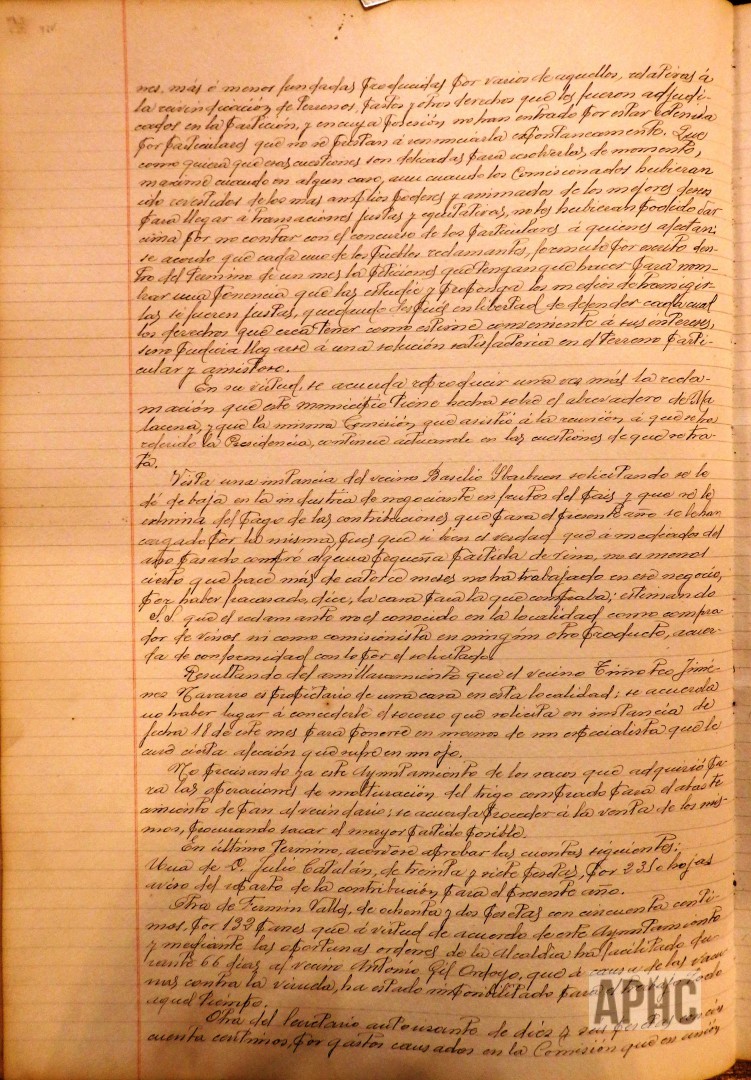 nes, más ó menos fundadas producidas por varios de aquellos, relativas á
la reivindicación de terrenos, pastos y otros derechos que les fueron adjudi-
cados en la partición, y en cuya posesión no han entrado por estar detenida
por particulares que no se prestan á renunciarla espontaneamente. Que
como quiera que esas cuestiones son delicadas para resolverlas, de momento,
maxime cuando en algun caso, aun cuando los Comisionados hubieran
ido revestidos de los mas amplios poderes y animados de los mejores deseos
para llegar á transaciones justas y equitativas, no los hubieran podido dar
cima por no contar con el concurso de los particulares á quienes afectan;
se acordó que cada uno de los pueblos reclamantes, formule por escrito den-
tro del termino de un mes la peticiones que tengan que hacer para nom-
brar una ponencia que las estudie y proponga los medios de transigir
las si fueren justas, quedando despues en libertad de defender cada cual
los derechos que crea tener como estime conveniente á sus intereses,
si no pudiera llegarse á una solución satisfactoria en el terreno parti-
cular y amistoso.
En su virtud, se acuerda reproducir una vez más la recla-
mación que este municipio tiene hecha sobre el abrevadero de Ma
lacena, y que la misma Comisión que asistió á la reunión á que se ha
referido la Presidencia, continue actuando en las cuestiones de que se tra-
ta.
Vista una instancia del vecino Basilio Ybarbuen solicitando se le
dé de baja en la industria de negociante en frutos del pais y que se le
exima del pago de las contribuciones que para el presente año se le han
cargado por la misma, pues que si bien es verdad que á mediados del
año pasado compró alguna pequeña partida de vino, no es menos
cierto que hace más de catorce meses no ha trabajado en ese negocio,
por haber fracasado, dice, la casa para la que compraba; estimando
S.S. que el reclamante no es conocido en la localidad como compra-
dor de vinos ni como comisionista en ningún otro producto, acuer-
da de conformidad con lo por el solicitado.
Resultando del amillaramiento que el vecino Timoteo Jimé-
nez Navarro es propietario de una casa en esta localidad; se acuerda
no haber lugar á concederle el socorro que solicita en instancia de
fecha 18 de este mes para ponerse en manos de un especialista que le
cure cierta afección que sufre en un ojo.
No precisando ya este Ayuntamiento de los sacos que adquirió pa-
ra las operaciones de molturación del trigo comprado para el abaste
cimiento de pan al vecindario; se acuerda proceder á la venta de los mis-
mos, procurando sacar el mayor partido posible.
En último termino, acordose aprobar las cuentas siguientes:
Una de D. Julio Catalán, de treinta y siete pesetas, por 235 hojas
aviso del reparto de la contribución para el presente año.
Otra de Fermin Valles, de ochenta y dos pesetas con cincuenta centi-
mos, por 132 panes que á virtud de acuerdo de este Ayuntamiento
y mediante las oportunas ordenes de la Alcaldia ha facilitado du-
rante 66 dias al vecino Antonio Gil Ordoyo, que á causa de las vacu-
nas contra la viruela, ha estado imposibilitado para
aquel tiempo.
Otra del Secretario autorisante de diez y seis pesetas con cin
cuenta centimos, por gastos causados en la Comisión que en unión
APHC